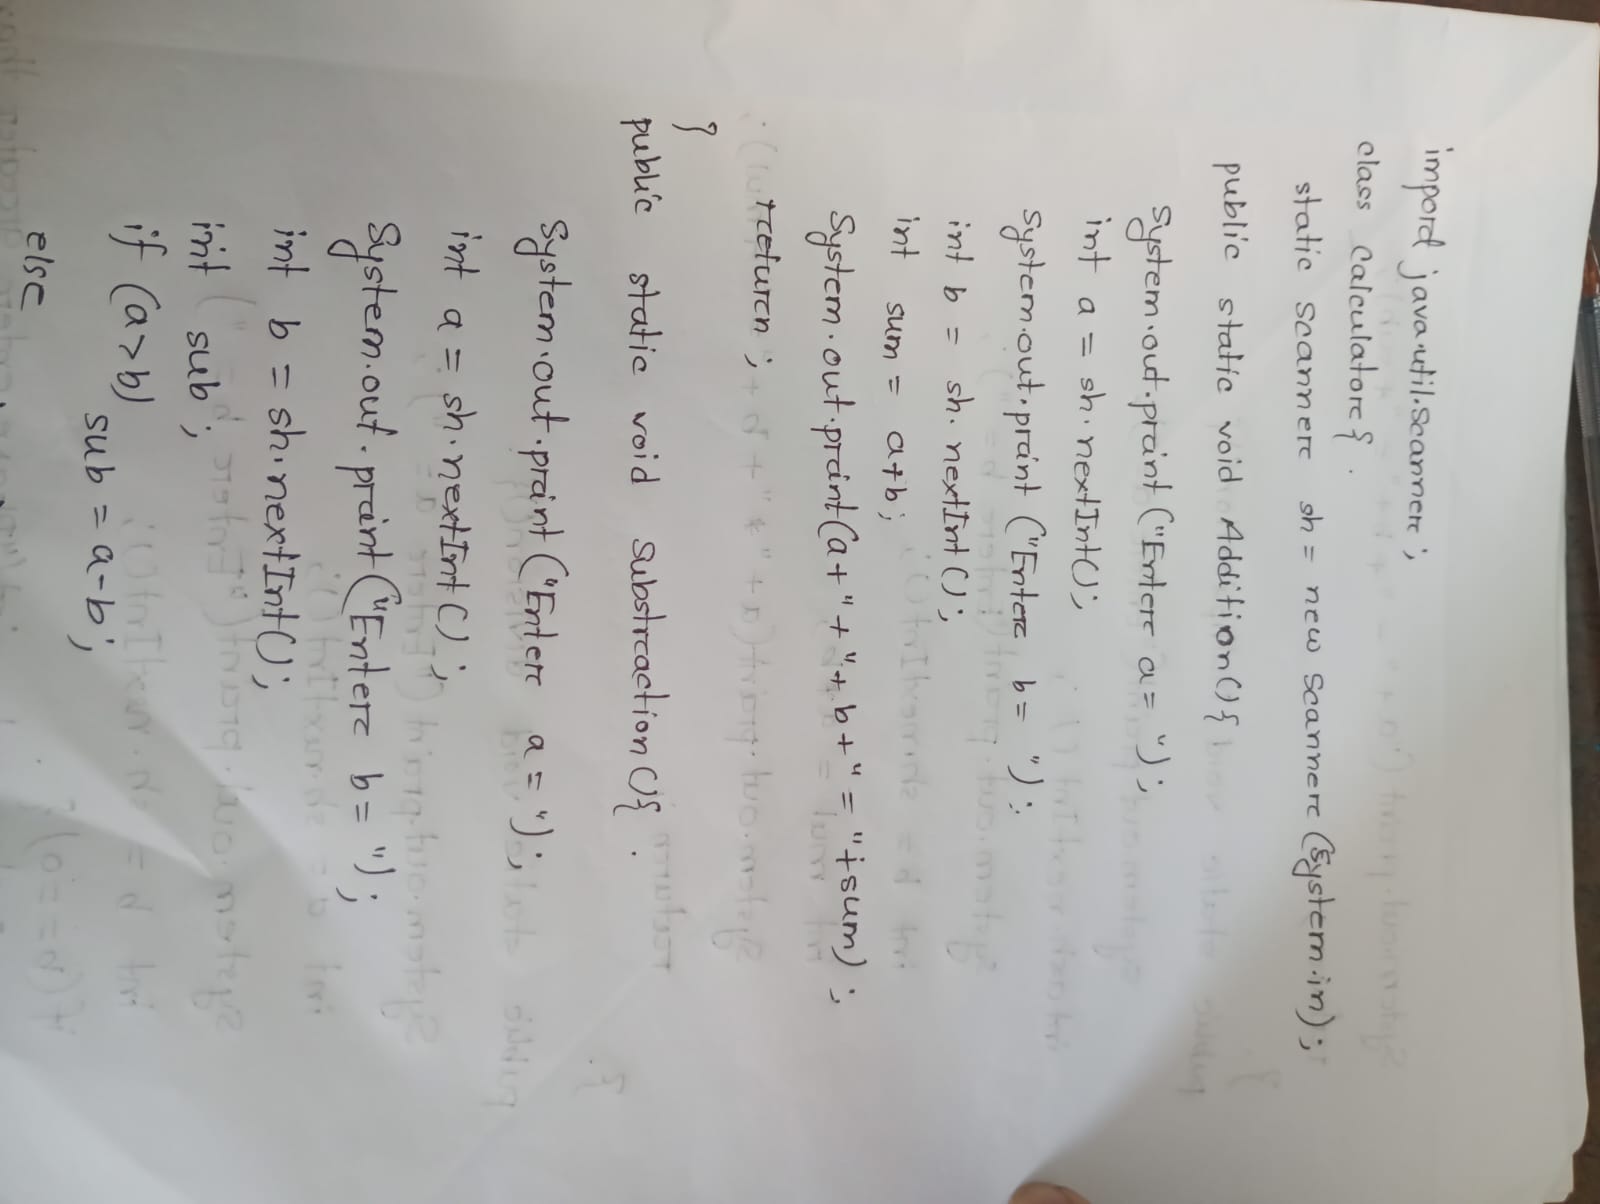 impord java.util.scannerc;
class calculatorc{
static scannerc sh = new scannerc (system.in);
public static void Addition(){
system.out.prcint ("Enterc a= ");
int a = sh.nextInt();
system.out.prcint ("Enterc b= "):
int b = sh.nextInt();
int sum = a+b;
system.out.prcint(a+"+"+b+"="+sum);
rceturcn;
}
public static void substrcaction(){
system.out.prcint ("Enterc a=");
int a = sh.nextInt();
system.out.prcint ("Enterc b= ");
int b = sh.nextInt();
int sub;
if (a>b)
sub = a-b;
else